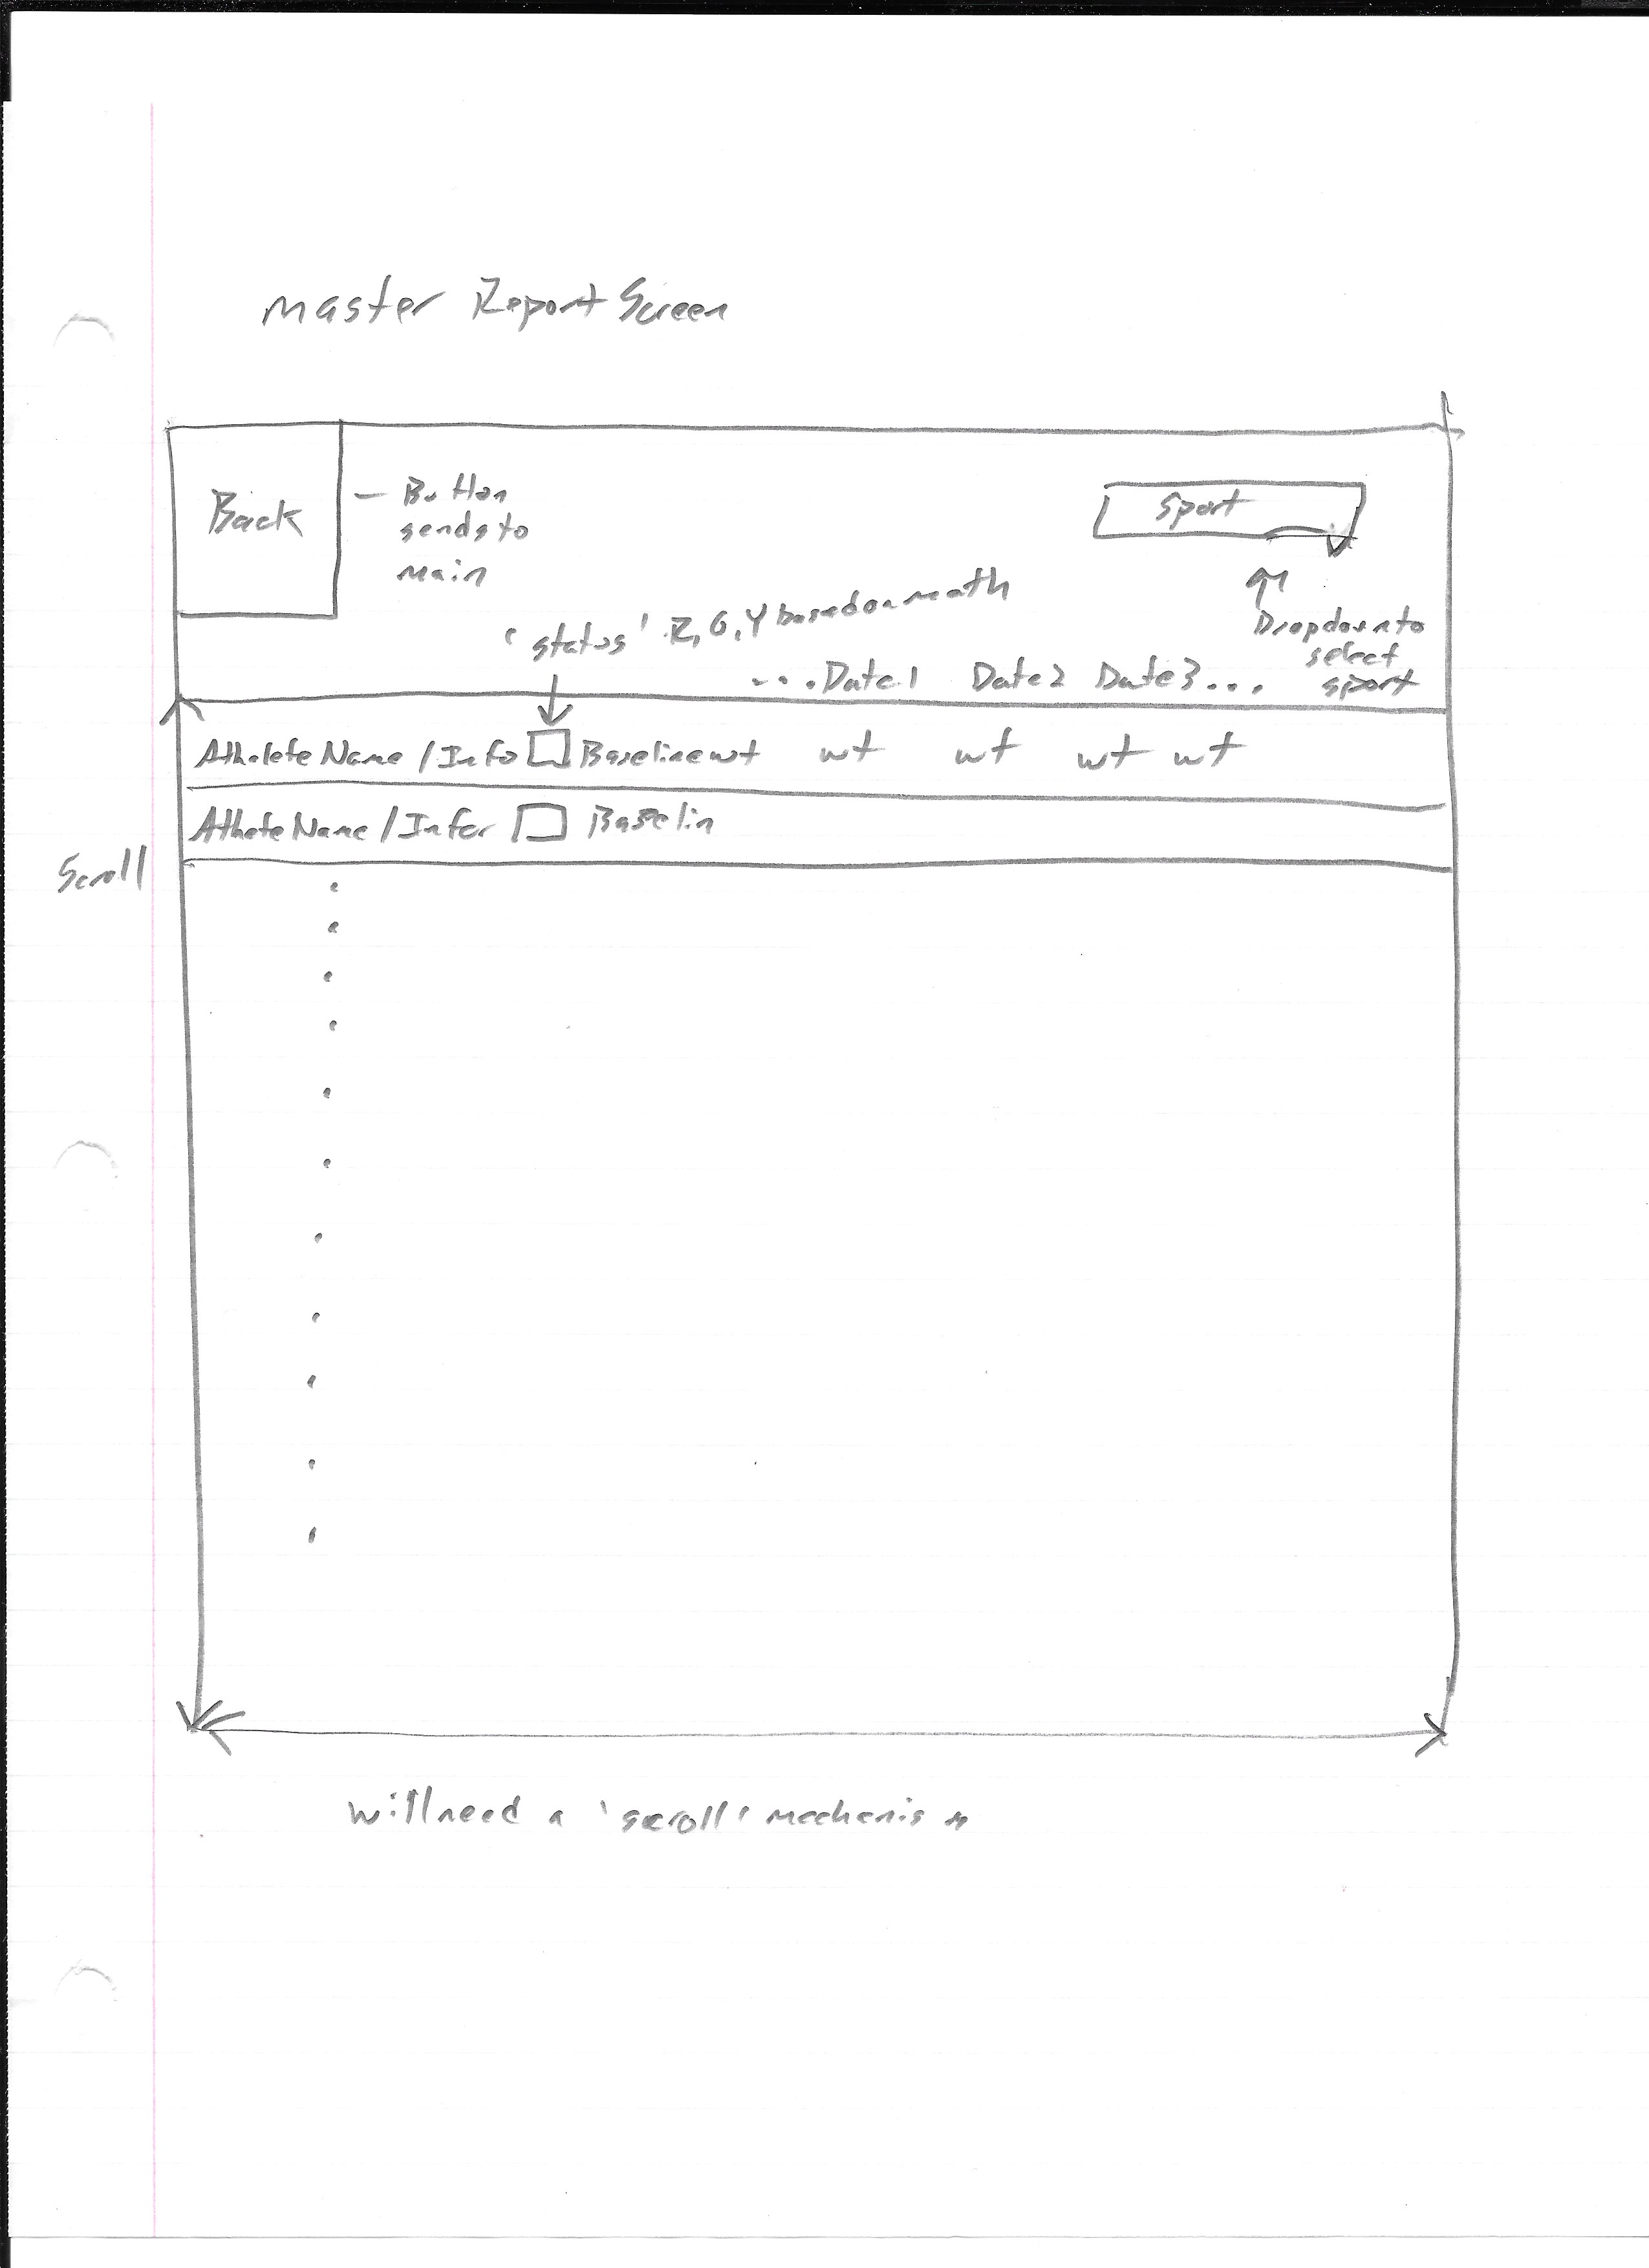 Master Report Screen
Back
— Button
sends to
main
Sport
Dropdown to
select
sport
'status' R, G, Y based on math
... Date 1 Date 2 Date 3 ...
Athelete Name / Info Baseline wt wt wt wt wt
Athlete Name / Infor Baselin
Scroll
will need a 'scroll' mechanism